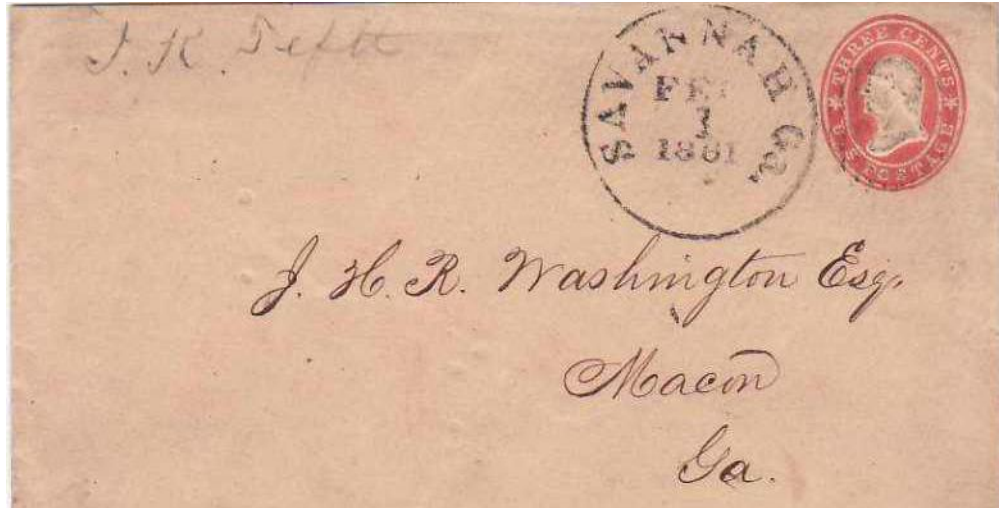 J. K. Tefft
SAVANNAH Ga.
FEB
1
1861
THREE CENTS
U.S. POSTAGE
J. H. R. Washington Esq.
Macon
Ga.